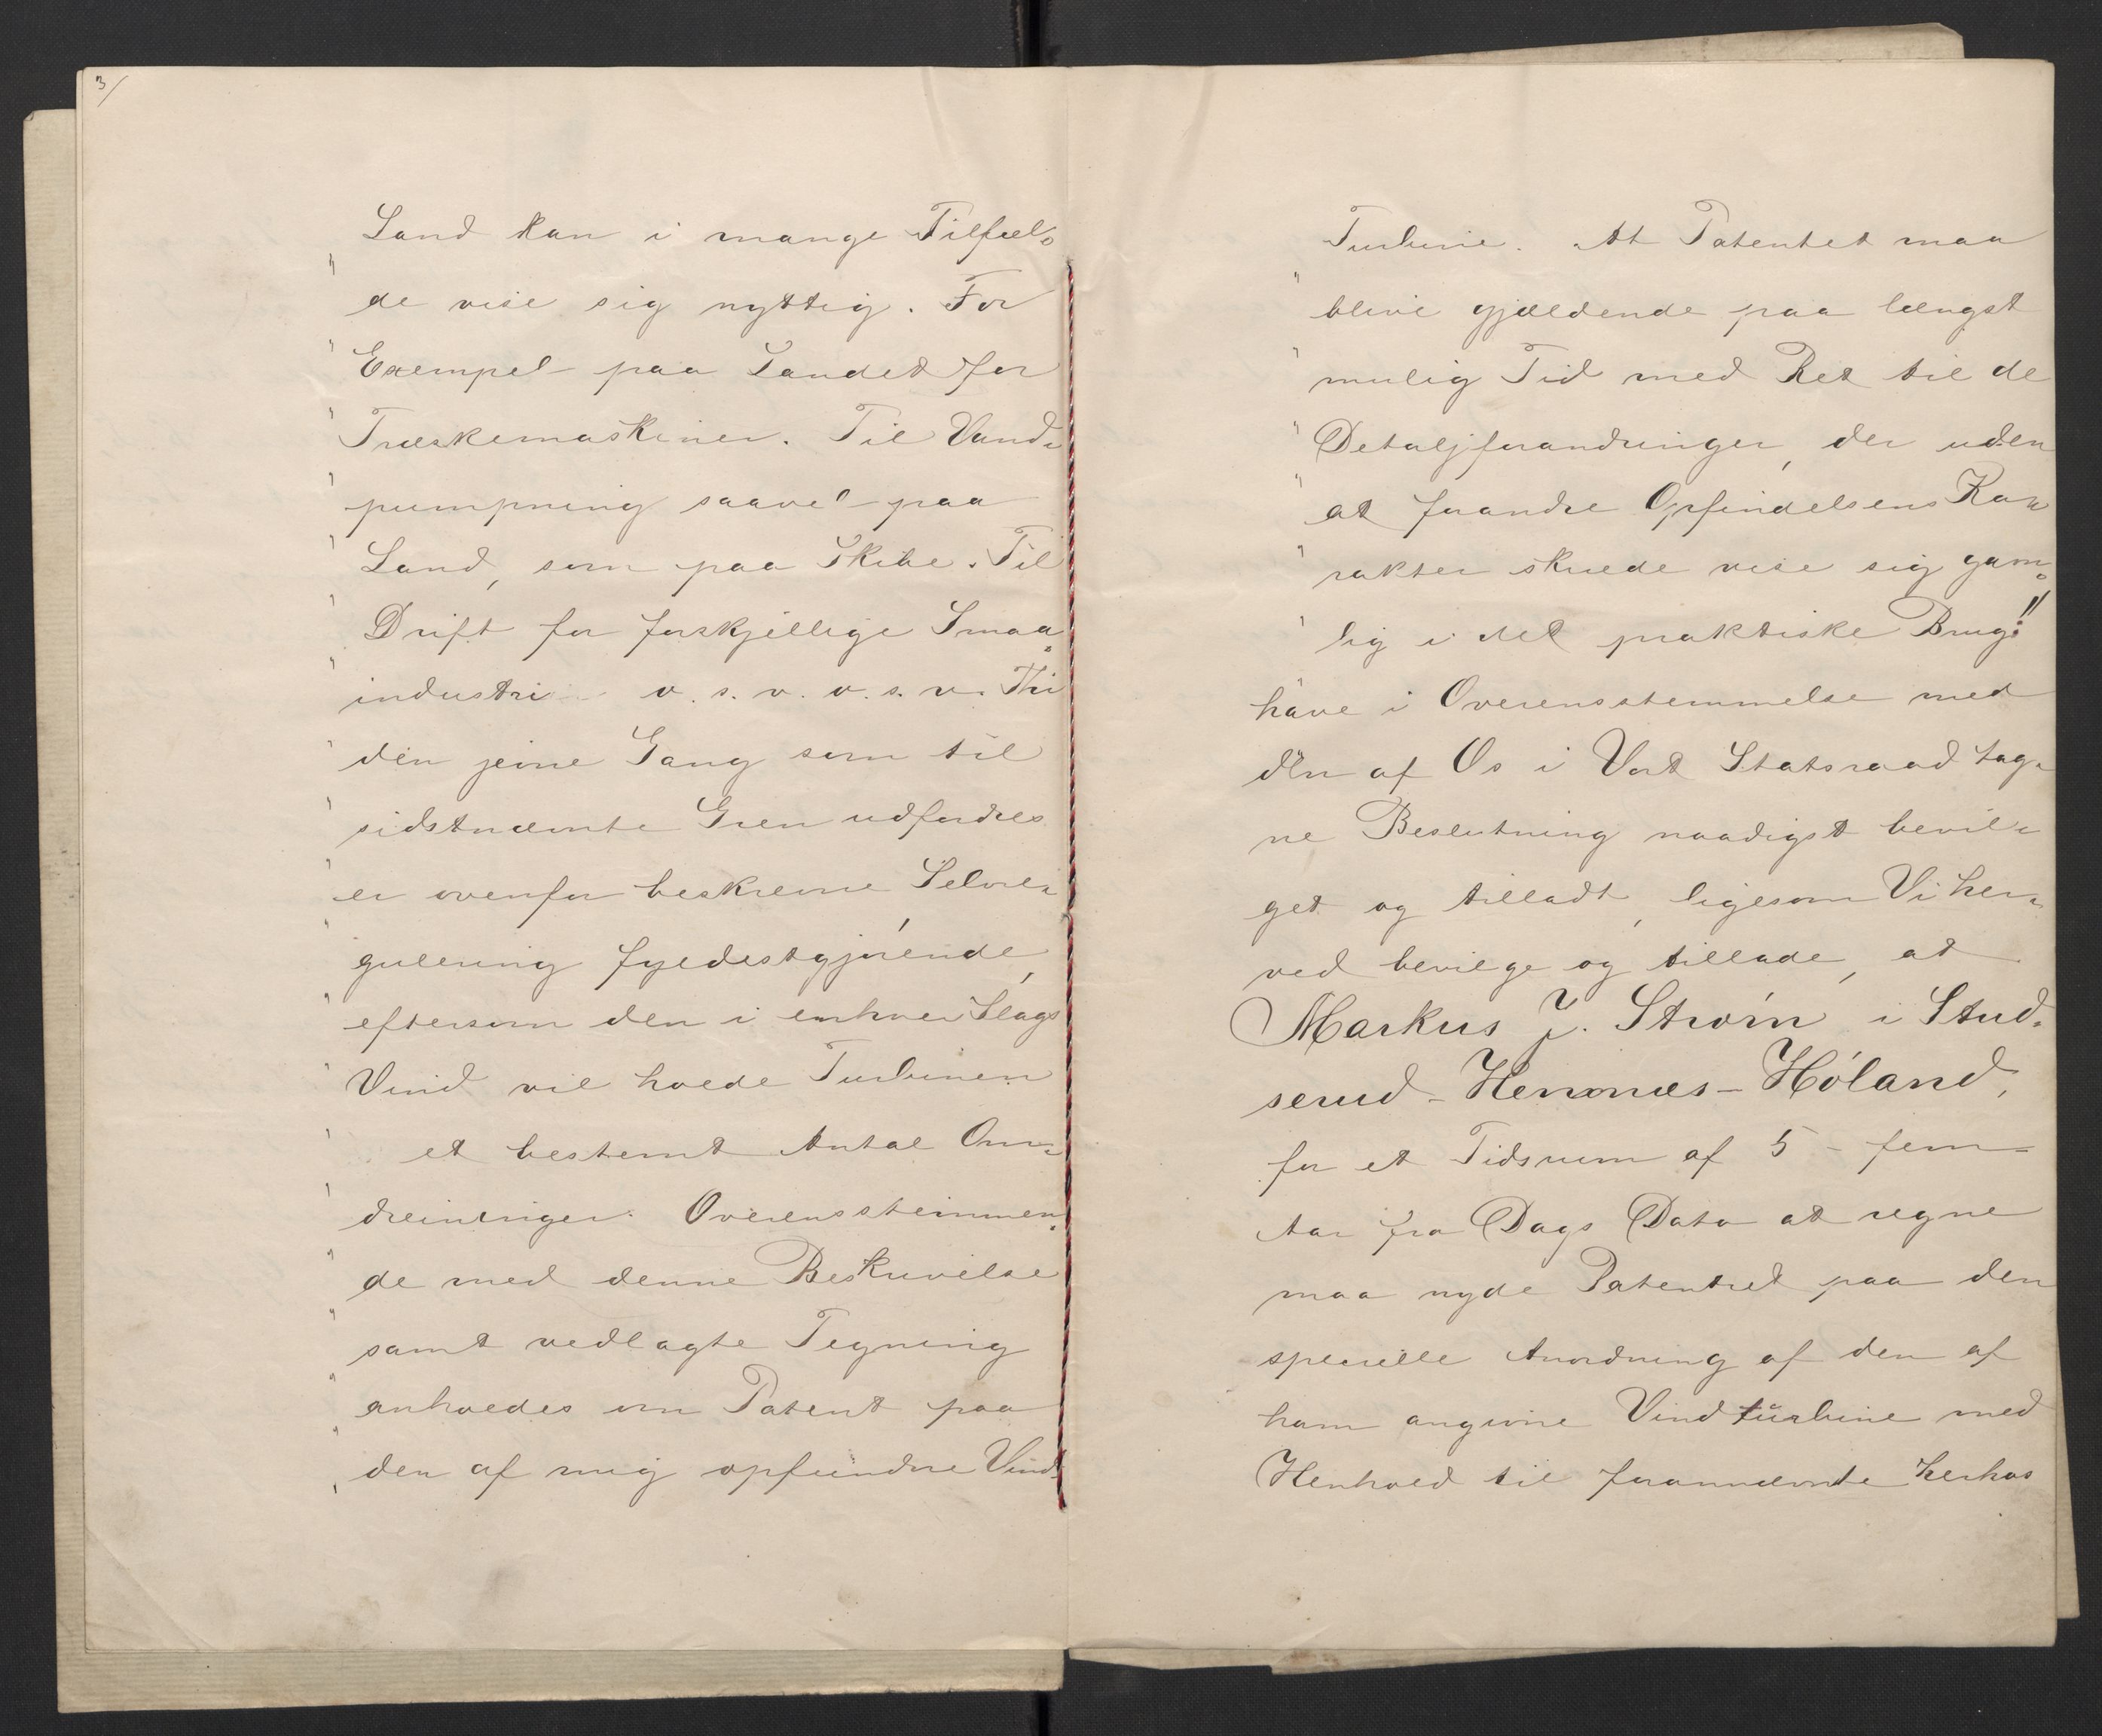 3/
Land kan i mange Tilfæl-
" de vise sig nyttig. For
" Exempel paa Landet for
" Træskemaskiner. Til Vand-
" pumpning saavel paa
" Land, som paa Skibe. Til
" Drift for forskjellige Smaa-
" industri o. s. v. o. s. v. Thi
" den jevne Gang som til
" sidstnævnte Gren udfordres
" er ovenfor beskrevne Selvre-
" gulering fyldestgjørende,
" eftersom den i enhver Slags
" Vind vil holde Turbinen
" et bestemt Antal Om-
" dreininger. Overensstemmen-
" de med denne Beskrivelse
" samt vedlagte Tegning
" anholdes om Patent paa
" den af mig opfundne Vind-
Turbine. At Patentet maa
" blive gjældende paa længst
" mulig Tid med Ret til de
" Detaljforandringer, der uden
" at forandre Opfindelsens Ka-
" rakter skulde vise sig gavn-
" lig i det praktiske Brug."
have i Overensstemmelse med
den af Os i Vort Statsraad tag-
ne Beslutning naadigst bevil-
get og tilladt, ligesom Vi her-
ved bevilge og tillade, at
Markus J. Strøm i Stud-
serud - Hemnæs - Høland,
for et Tidsrum af 5 - fem -
Aar fra Dags Dato at regne
maa nyde Patentret paa den
specielle Anordning af den af
ham angivne Vindturbine med
Henhold til forannævnte herhos